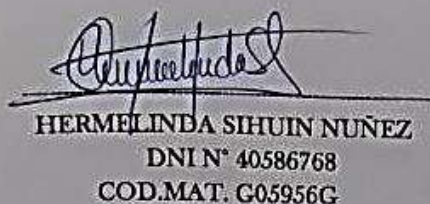 HERMELINDA SIHUIN NUÑEZ
DNI N° 40586768
COD.MAT. G05956G